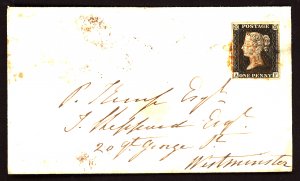 POSTAGE
ONE PENNY
P. Kemp Esqr
J. Sheppard Esqr
20 Gt George St
Westminster